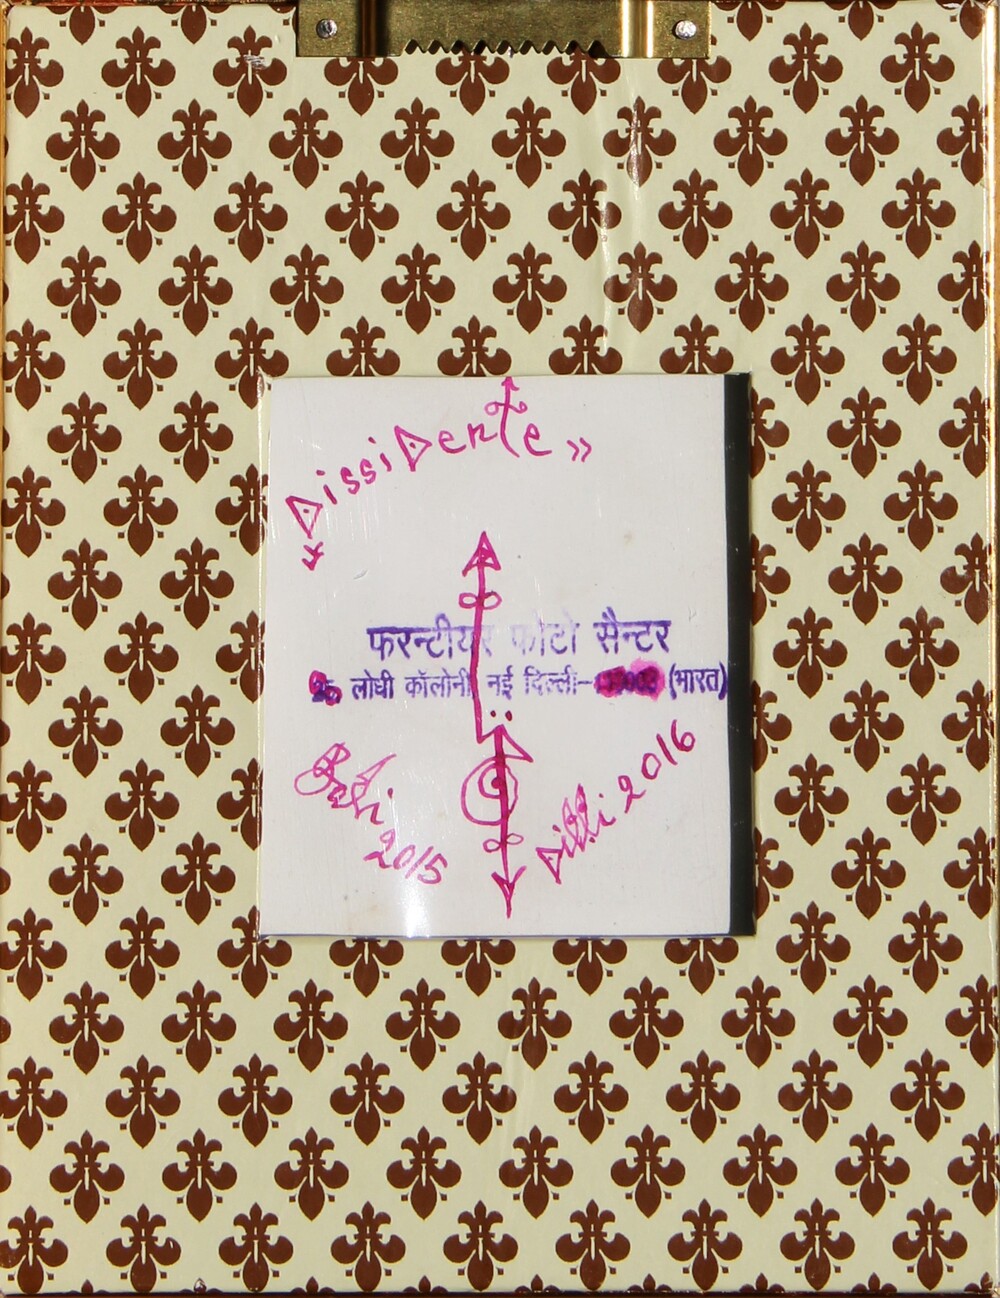 Dissidente »
फरन्टीयर फोटो सैन्टर
लोधी कॉलोनी, नई दिल्ली- (भारत)
2015
Dilli 2016